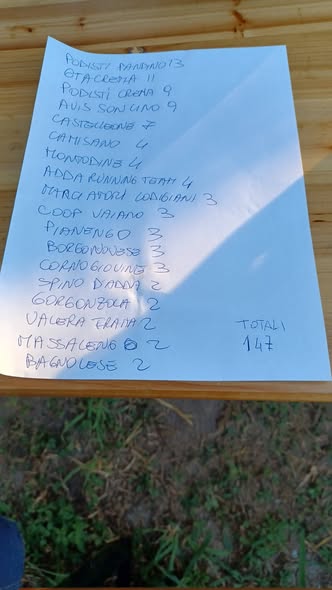 PODISTI PANDINO 13
ETA CREMA 11
PODISTI CREMA 9
AVIS SONCINO 9
CASTELLEONE 7
CAMISANO 4
MONTODINE 4
ADDA RUNNING TEAM 4
MARCIATORI LODIGIANI 3
COOP VAIANO 3
PIANENGO 3
BORGONOVESE 3
CORNOGIOVINE 3
SPINO D'ADDA 2
GORGONZOLA 2
VALERA FRATTA 2
MASSALENGO 2
BAGNOLESE 2
TOTALI
147